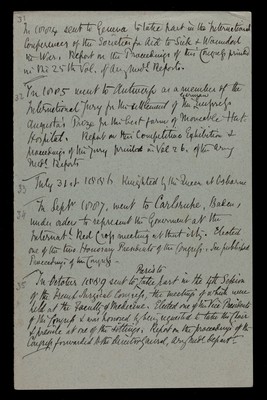 31
In 1884 sent to Geneva to take part in the International
Conferences of the Societies for Aid to Sick & Wounded
in War. Report on the Proceedings of this Congress printed
in the 25th Vol. of Army Med. Reports.
32
In 1885 went to Antwerp as a member of the
German
International Jury for the settlement of the Empress
Augusta's Prize for the best form of Moveable Hut
Hospital. Report on this Competitive Exhibition &
proceedings of the Jury printed in Vol 26. of the Army
Med. Reports
33 July 31st 1886 Knighted by the Queen at Osborne
34 In Septr 1887. went to Carlsruhe, Baden,
under orders to represent the Government at the
Internatl. Red Cross meeting at that city. Elected
one of the two Honorary Presidents of the Congress. See published
Proceedings of the Congress.
Paris to
35 In October 1889 sent to take part in the 4th Session
of the French Surgical Congress, the meetings of which were
held at the Faculty of Medicine. Elected one of the Vice Presidents
of the Congress & was honored by being requested to take the Chair
& preside at one of the sittings. Report on the proceedings of the
Congress forwarded to the Director General, Army Med. Departt.